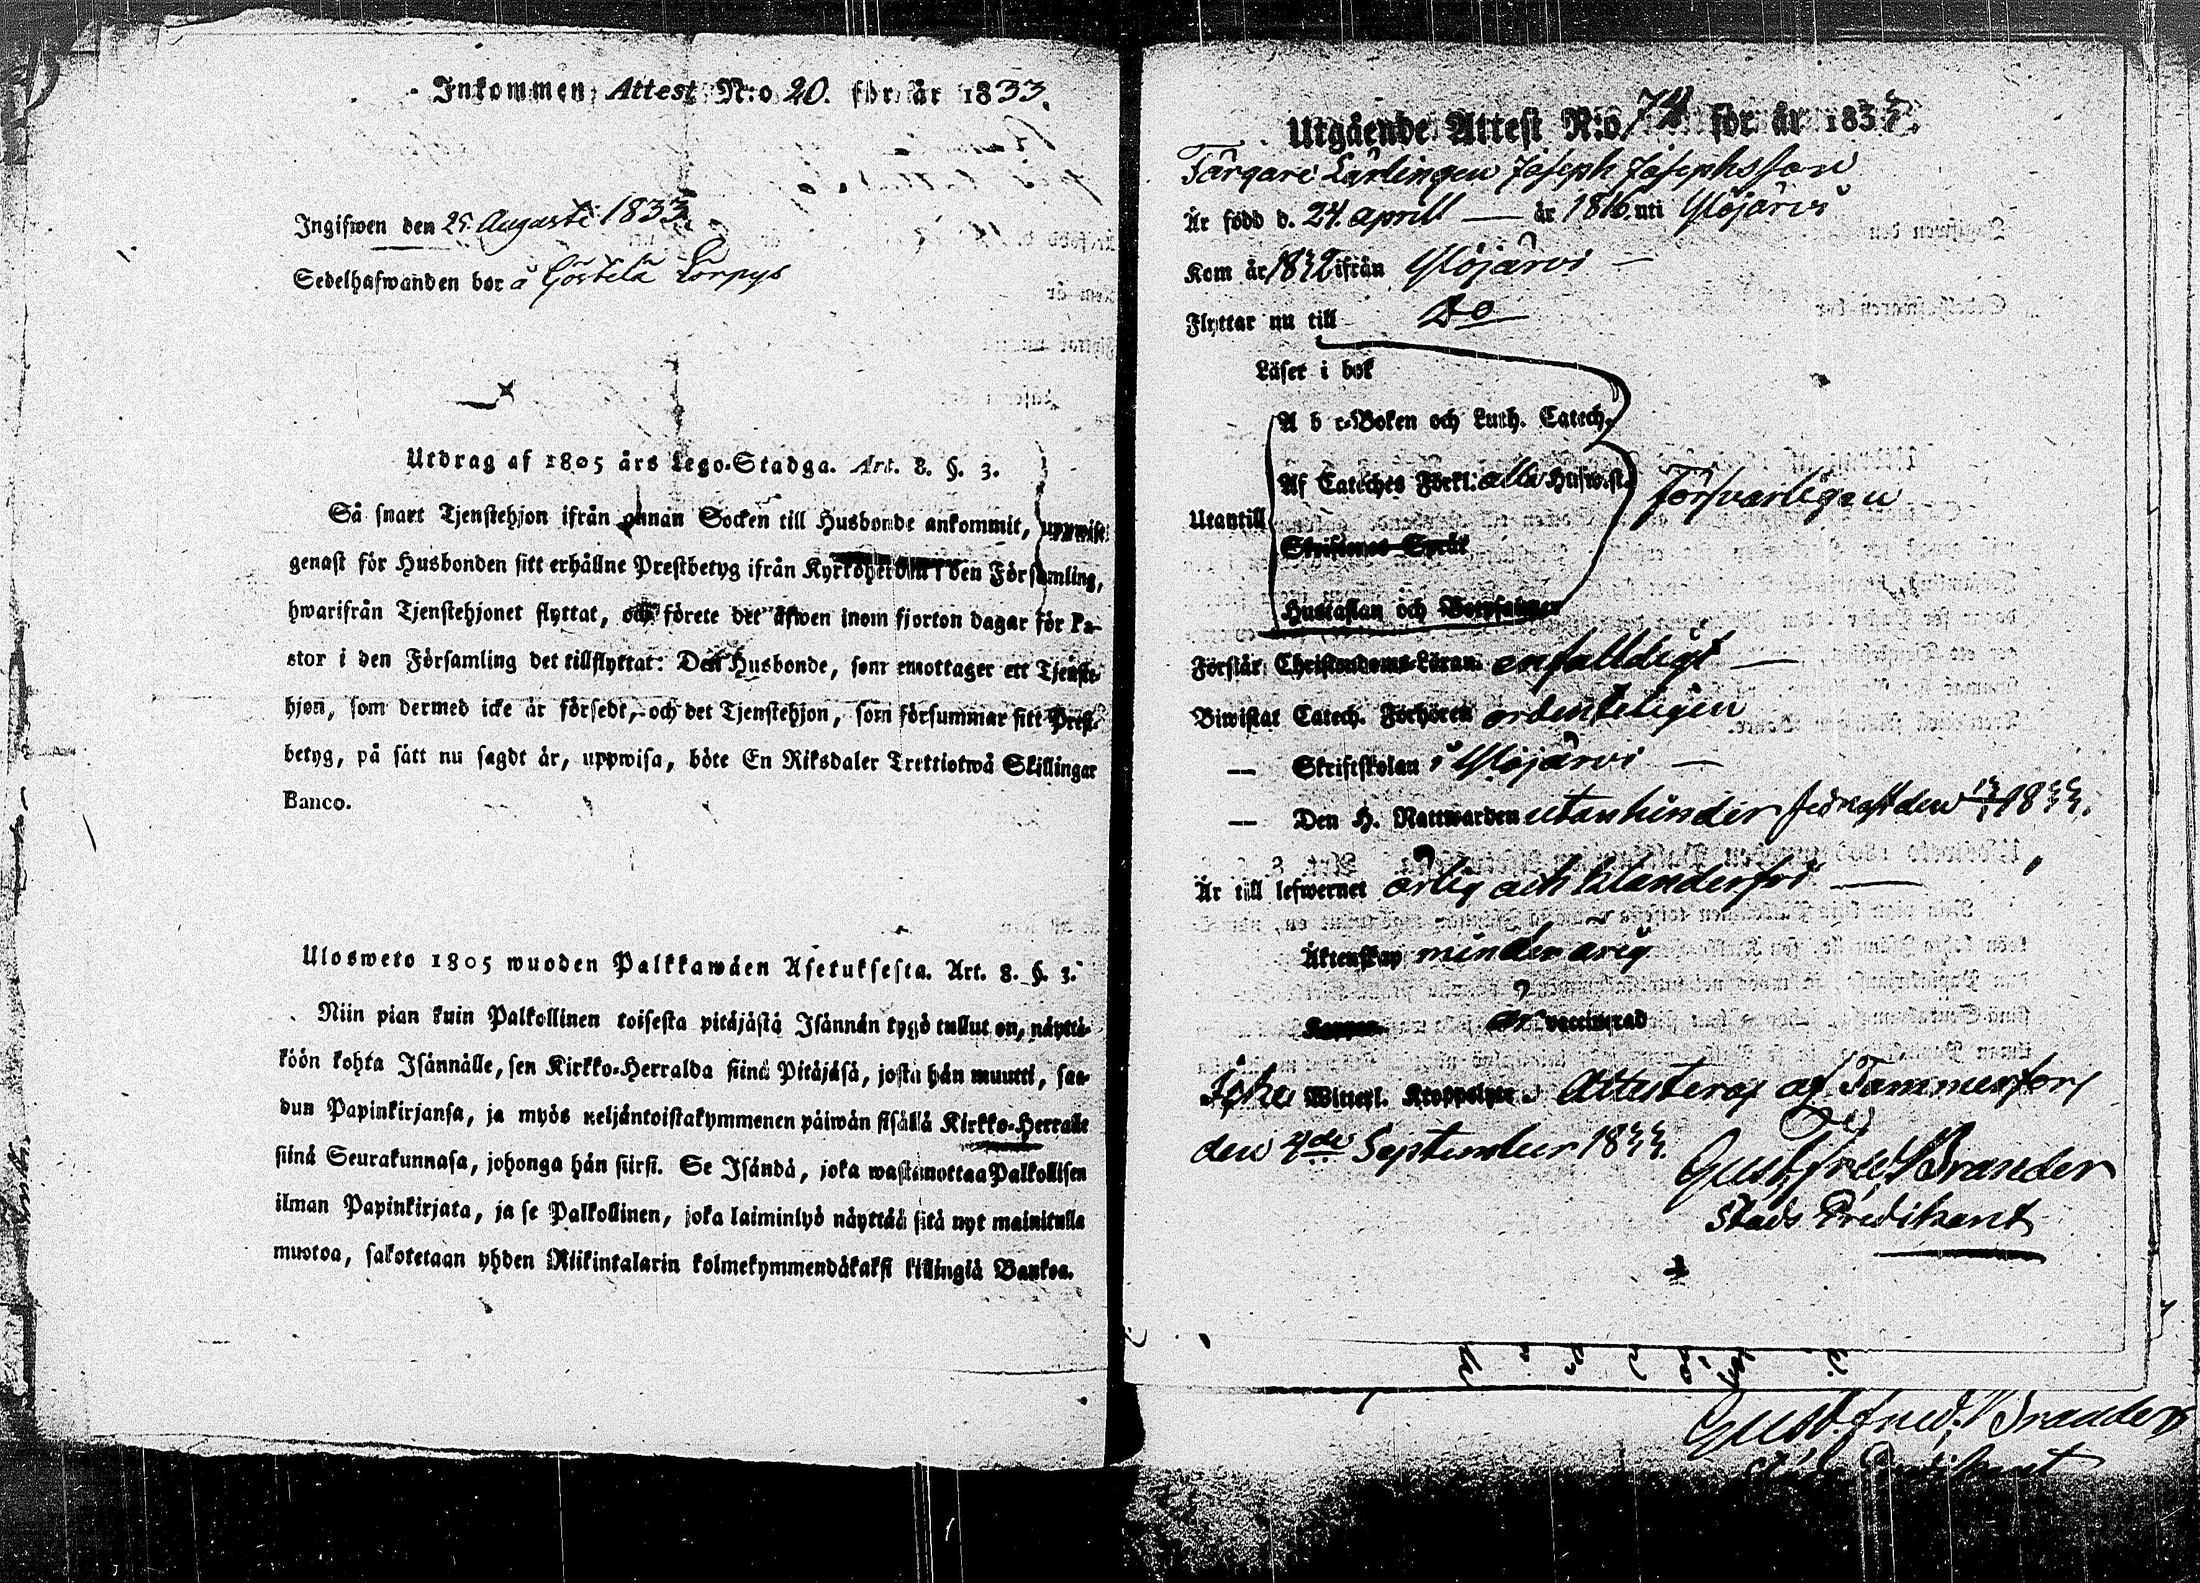 Inkommen Attest N:o 20. för år 1833.
Ingifwen den 25. Augusti 1833
Sedelhafwanden bor å Görtelä Torpys
Utdrag af 1805 års Lego-Stadga. Art. 8. §. 3.
Så snart Tjenstehjon ifrån annan Socken till Husbonde ankommit, uppwise
genast för Husbonden sitt erhållne Prestbetyg ifrån Kyrkoherden i den Församling,
hwarifrån Tjenstehjonet flyttat, och förete det äfwen inom fjorton dagar för Pa-
stor i den Församling det tillflyttat: Den Husbonde, som emottager ett Tjenste-
hjon, som dermed icke är försedt, och det Tjenstehjon, som försummar sitt Prest-
betyg, på sätt nu sagdt är, uppwisa, böte En Riksdaler Trettiotwå Skillingar
Banco.
Ulosweto 1805 wuoden Palkkawäen Asetuksesta. Art. 8. §. 3.
Niin pian kuin Palkollinen toisesta pitäjästä Isännän tygö tullut on, näyttä-
köön kohta Isännälle, sen Kirkko-Herralda siinä Pitäjäsä, josta hän muutti, saa-
dun Papinkirjansa, ja myös neljäntoistakymmenen päiwän sisällä Kirkko-Herralle
siinä Seurakunnasa, johonga hän siirsi. Se Isändä, joka wastanottaa Palkollisen
ilman Papinkirjata, ja se Palkollinen, joka laiminlyö näyttää sitä nyt mainitulla
muotoa, sakotetaan yhden Riikintalarin kolmekymmendäkaksi killingiä Bankoa.
Utgående Attest N:o 74 för år 1833.
Färgare Lärlingen Joseph Josephsson
Är född d. 24. aprill — år 1816. uti Ylöjärvi
Kom år 1832 ifrån Ylöjärvi —
Flyttar nu till Do
Läser i bok
A b c-Boken och Luth. Catech.
Af Cateches Förkl. alla Husw.st.
Försvarligen
Utantill
Skriftenes Språk
Hustaflan och Botpsalmer
Förstår Christendoms-Läran. enfalldigt —
Biwistat Catech. Förhören ordenteligen
— Skriftskolan i Ylöjärvi —
— Den H. Nattwarden utan hinder sednast den 1833.
Är till lefwernet ärlig och klanderfri —
Äktenskap minderårig
Koppor är vaccinerad
Icke Witterl. Kroppslyte. Attesteras af Tammerfors
den 4de September 1833.
Gust. Fred. Brander
Stads Predikant
Gust. Fred. Brander
Stads Predikant